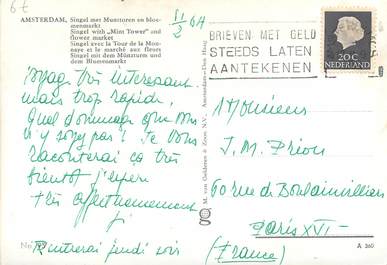 6€
AMSTERDAM, Singel met Munttoren en bloe-
menmarkt
Singel with "Mint Tower" and
flower market
Singel avec la Tour de la Mon-
naye et le marché aux fleurs
Singel mit dem Münzturm und
dem Blumenmarkt
BRIEVEN MET GELD
STEEDS LATEN
AANTEKENEN
20C
NEDERLAND
Voyage très intéressant
mais trop rapide,
Quel dommage que vous
n'y soyez pas! Je vous
raconterai ça très
bientôt j'espère
très affectueusement
Rentrerai jeudi soir
M. van Gelderen & Zoon N.V., Amsterdam-Den Haag
Monsieur
J. M. Prion
60 rue de Boulainvilliers
Paris XVI
(France)
No
A 260